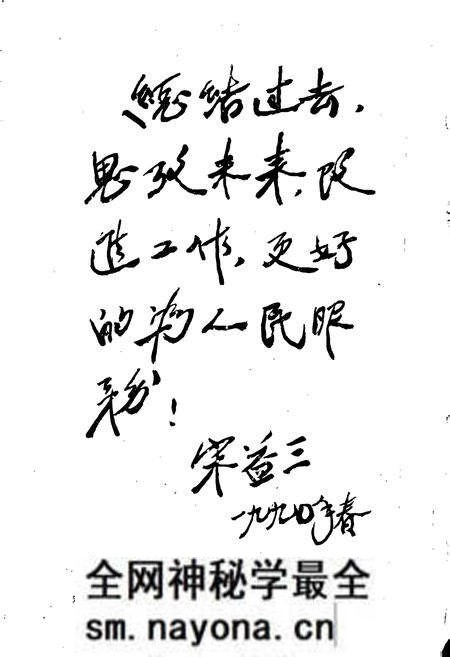 總结过去，
思攷未来，改
進工作，更好
的為人民服
務！
宋益三
一九九〇年春
全网神秘学最全
sm.nayona.cn